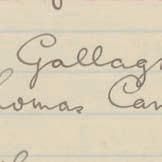 Gallag
homas Can